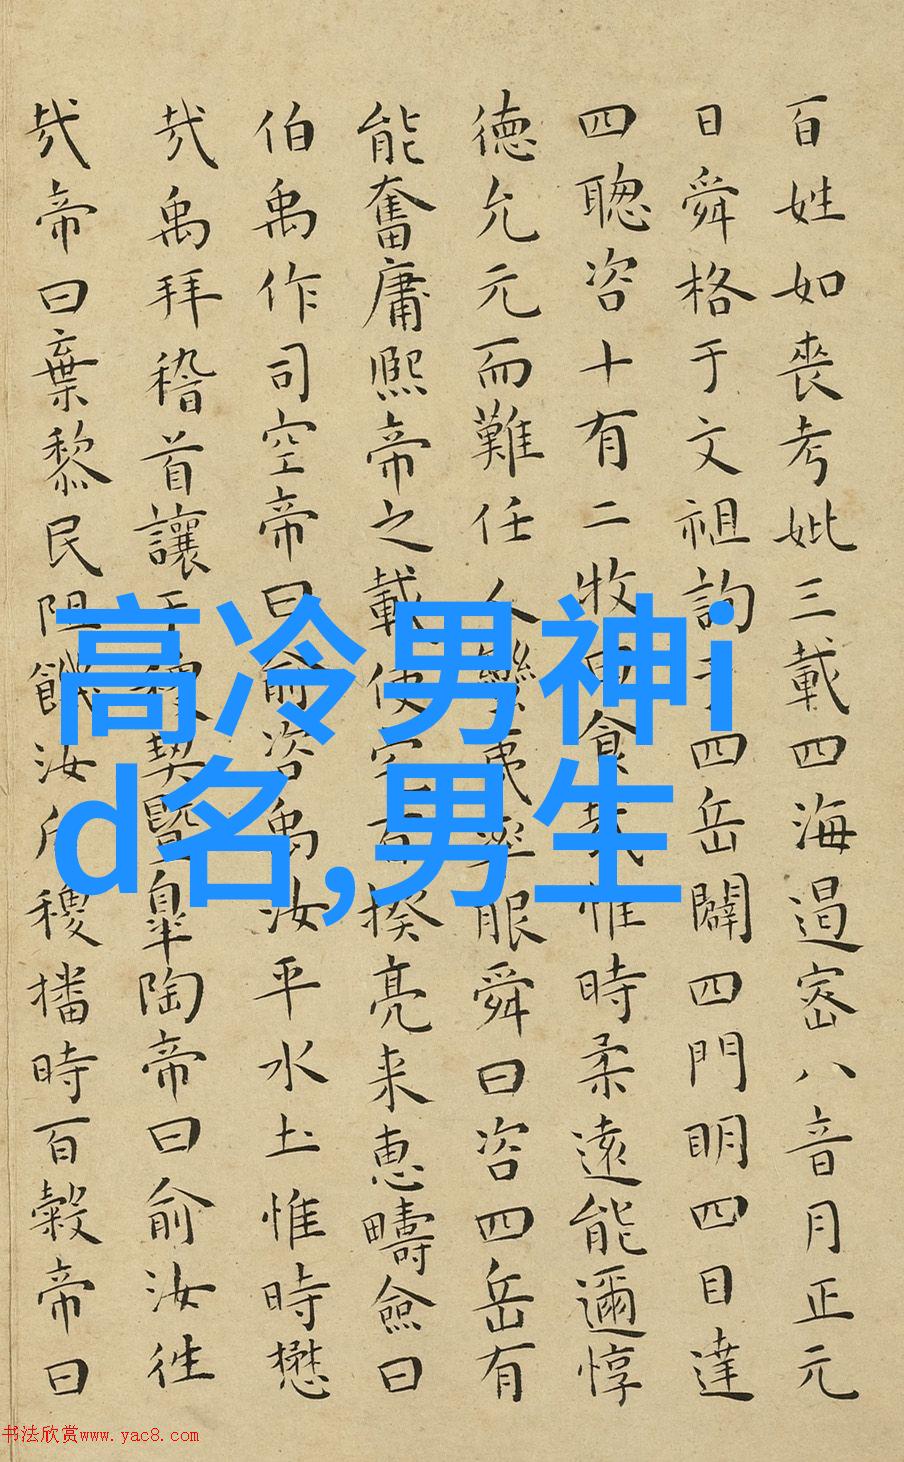 百姓如喪考妣三載四海遏密八音月正元
日舜格于文祖詢于四岳闢四門明四目達
四聰咨十有二牧曰食哉惟時柔遠能邇惇
德允元而難任人蠻夷率服舜曰咨四岳有
能奮庸熙帝之載使宅百揆亮来惠疇僉曰
伯禹作司空帝曰俞咨禹汝平水土惟時懋
哉禹拜稽首讓于稷契暨皐陶帝曰俞汝徃
哉帝曰棄黎民阻飢汝后稷播時百穀帝曰
高冷男神i
d名,男生
书法欣赏www.yac8.com